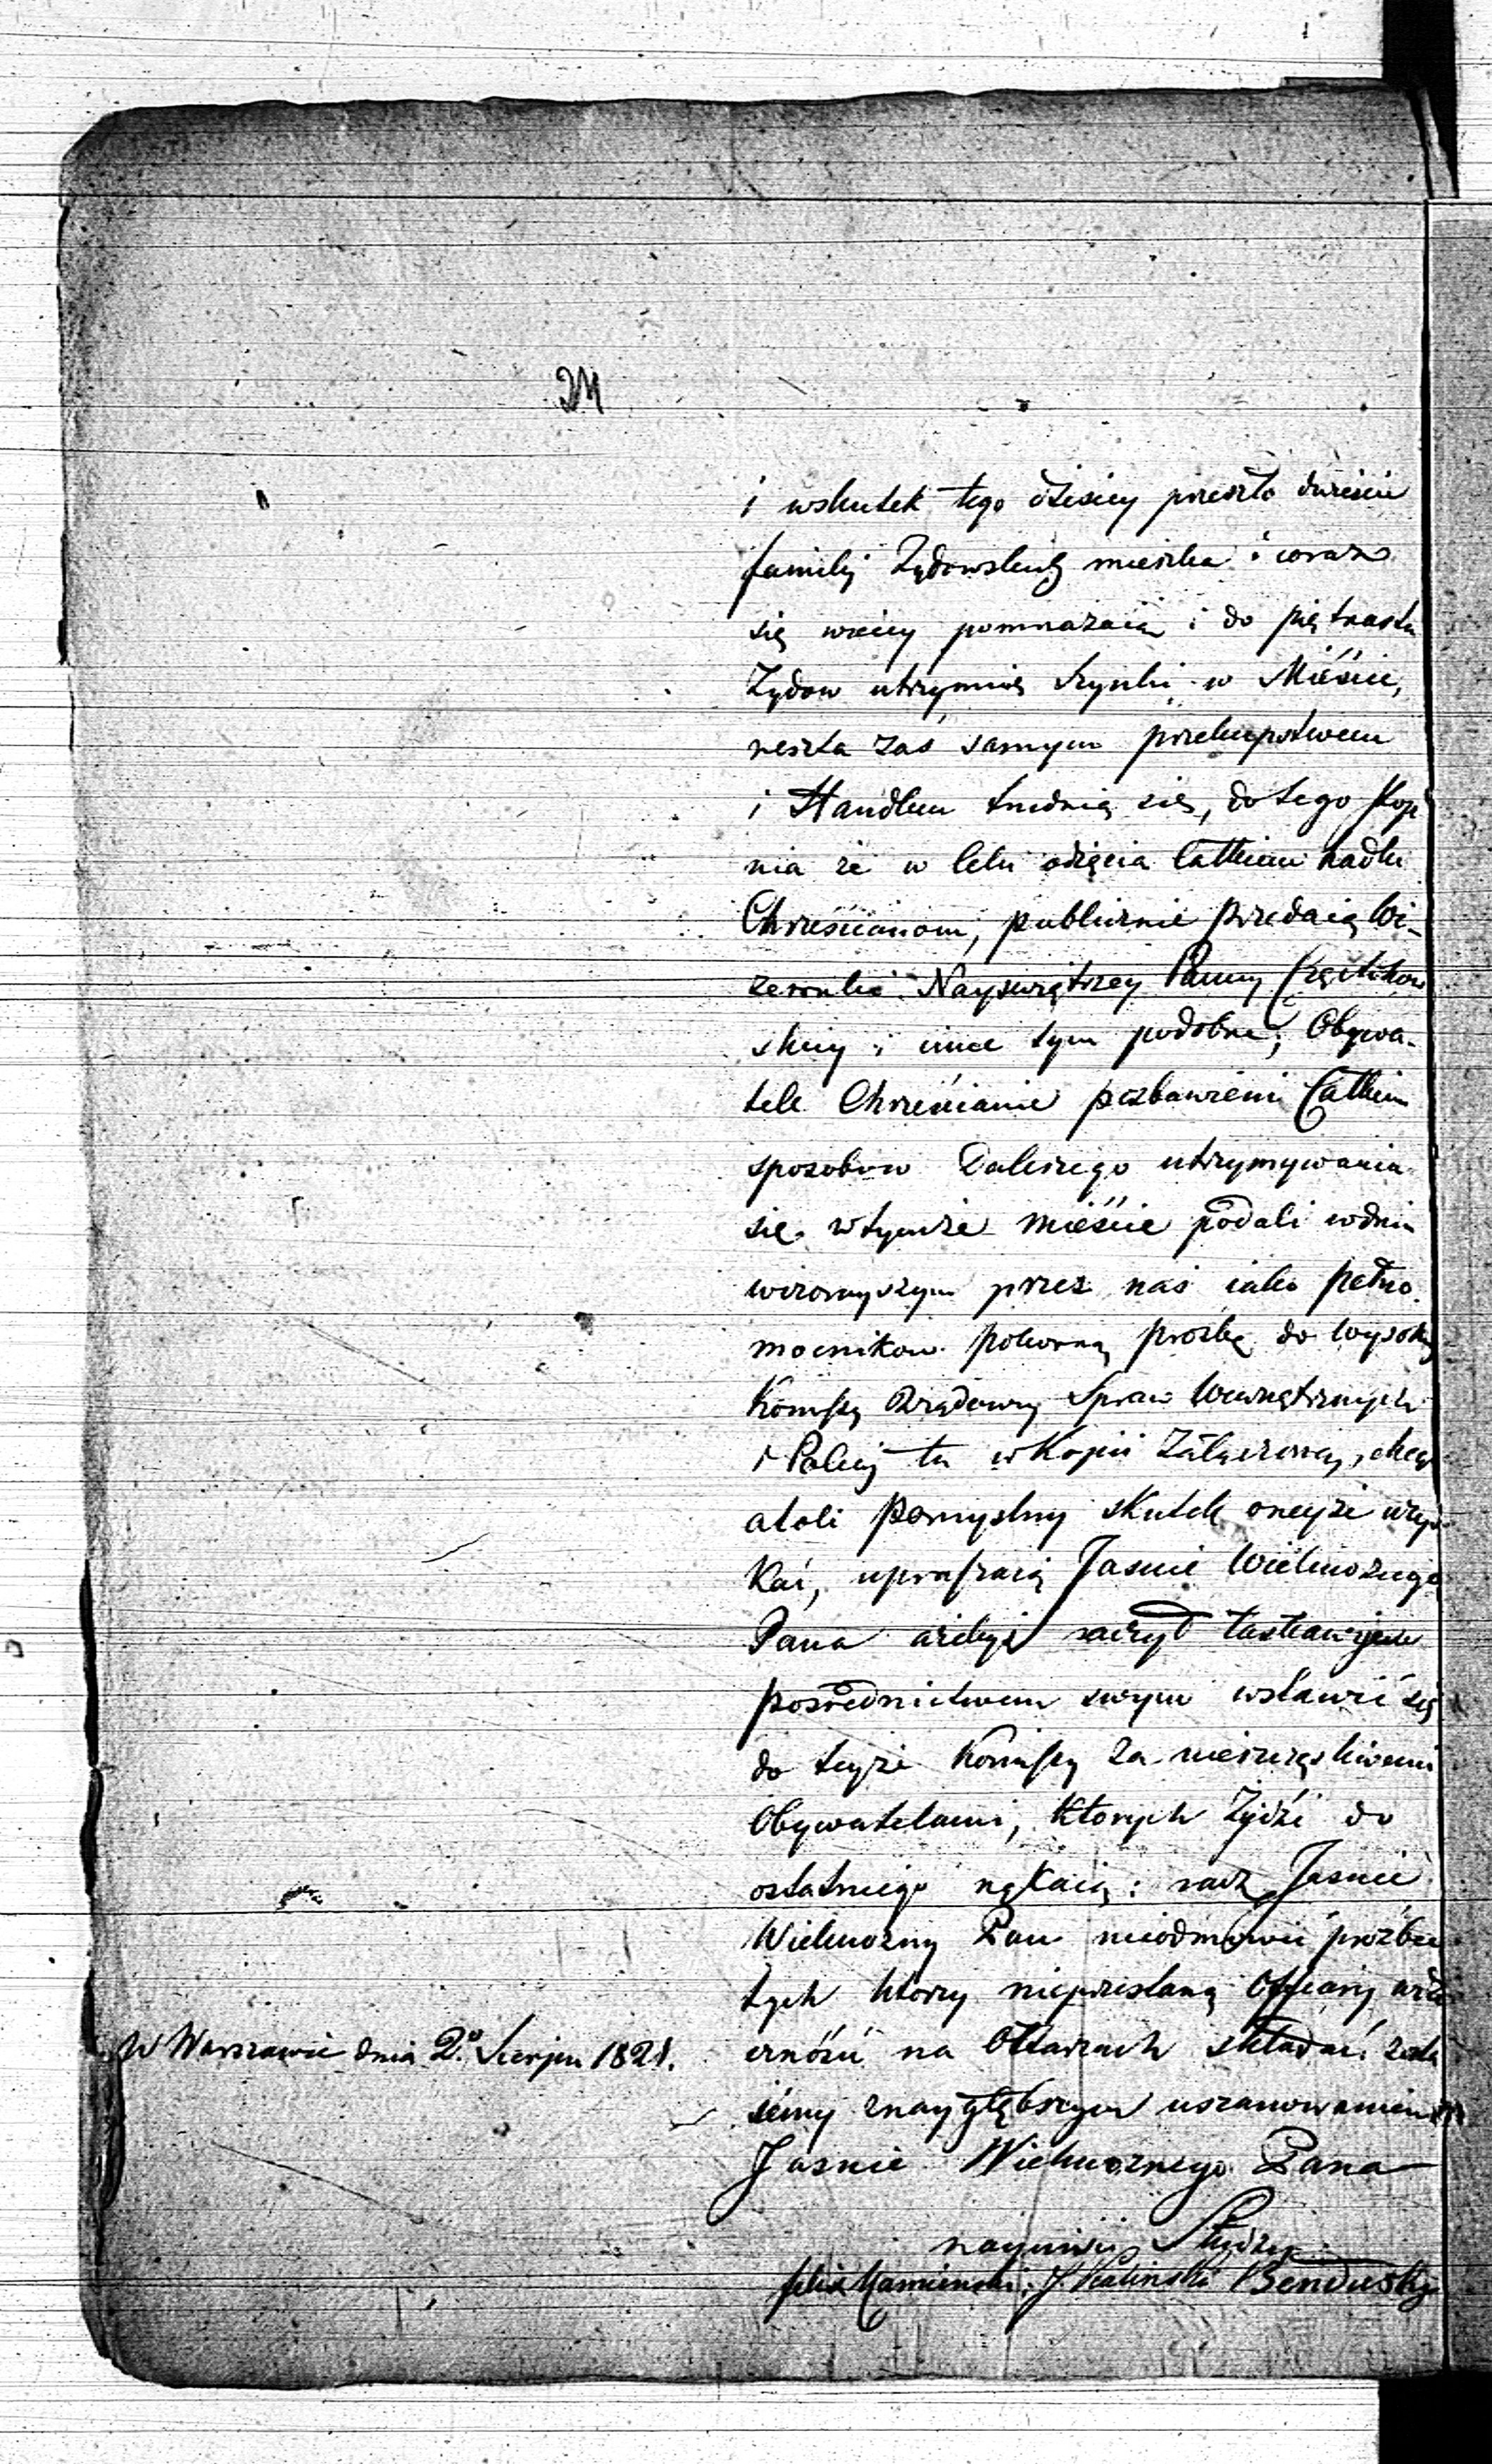 24
i wskutek tego dzisiey przeszło dwieście
familij Żydowskich mieszka i coraz
się więcey pomnażaią i do piętnastu
Żydow utrzymuie Szynki w Mieście,
reszta zaś samym przekupstwem
i Handlem trudnią się, do tego stop
nia że w celu odięcia całkiem handlu
Chrześcianom, publicznie przedaią Wi-
zerunki Nayświętszey Panny Częstochow
skiey i inne tym podobne; Obywa-
tele Chrześcianie pozbawieni całkiem
sposobow dalszego utrzymywania
się w tymże mieście podali w dniu
wczorayszym przez nas iako pełno-
mocnikow pokorną prośbę do Wysokiey
Komissyi Rządowey Spraw Wewnętrznych
i Policyi tu w Kopii załączoną, chcąc
atoli pomyślny skutek oneyże uzys-
kać, upraszaią Jaśnie Wielmożnego
Pana ażebyś raczył łaskawym
pośrednictwem swym wstawić się
do teyże Komissyi za nieszczęśliwemi
Obywatelami, ktorych Żydzi do
ostatniego nękaią: racz Jaśnie
Wielmożny Pan nieodmowić prozbie
tych ktorzy nieprzestaną Offiary wdzię
czności na Ołtarzach składać. zosta
iemy z naygłębszym uszanowaniem
Jaśnie Wielmożnego Pana
nayniżsi Słudzy
Felix Kamienski. J. Kalinski Benduski
W Warszawie dnia 2º Sierpnia 1821.